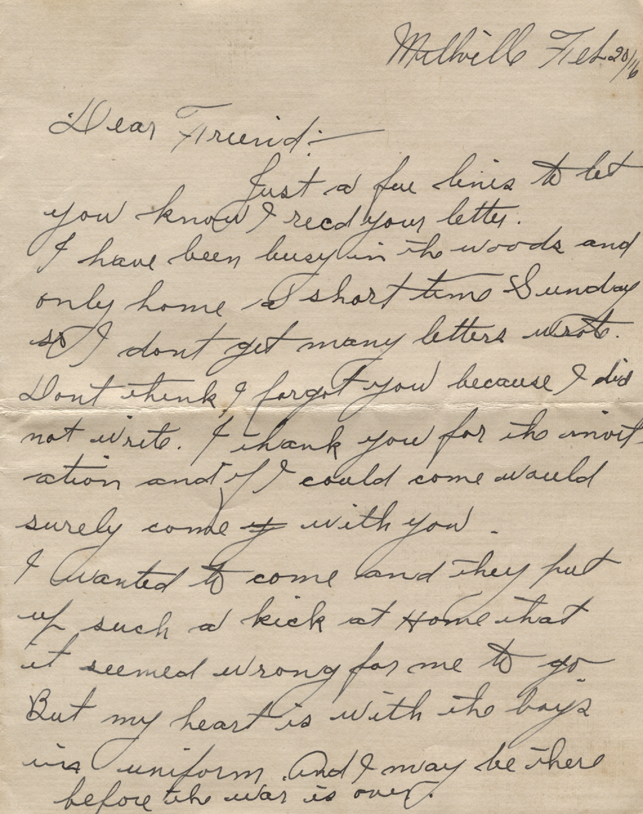 Millville Feb 20/16
Dear Friend:-
Just a few lines to let
you know I recd your letter.
I have been busy in the woods and
only home a short time Sunday
so I dont get many letters wrote.
Dont think I forgot you because I did
not write. I thank you for the invit
ation and if I could come would
surely come with you.
I wanted to come and they put
up such a kick at Home that
it seemed wrong for me to go
But my heart is with the boys
in uniform. And I may be there
before the war is over.